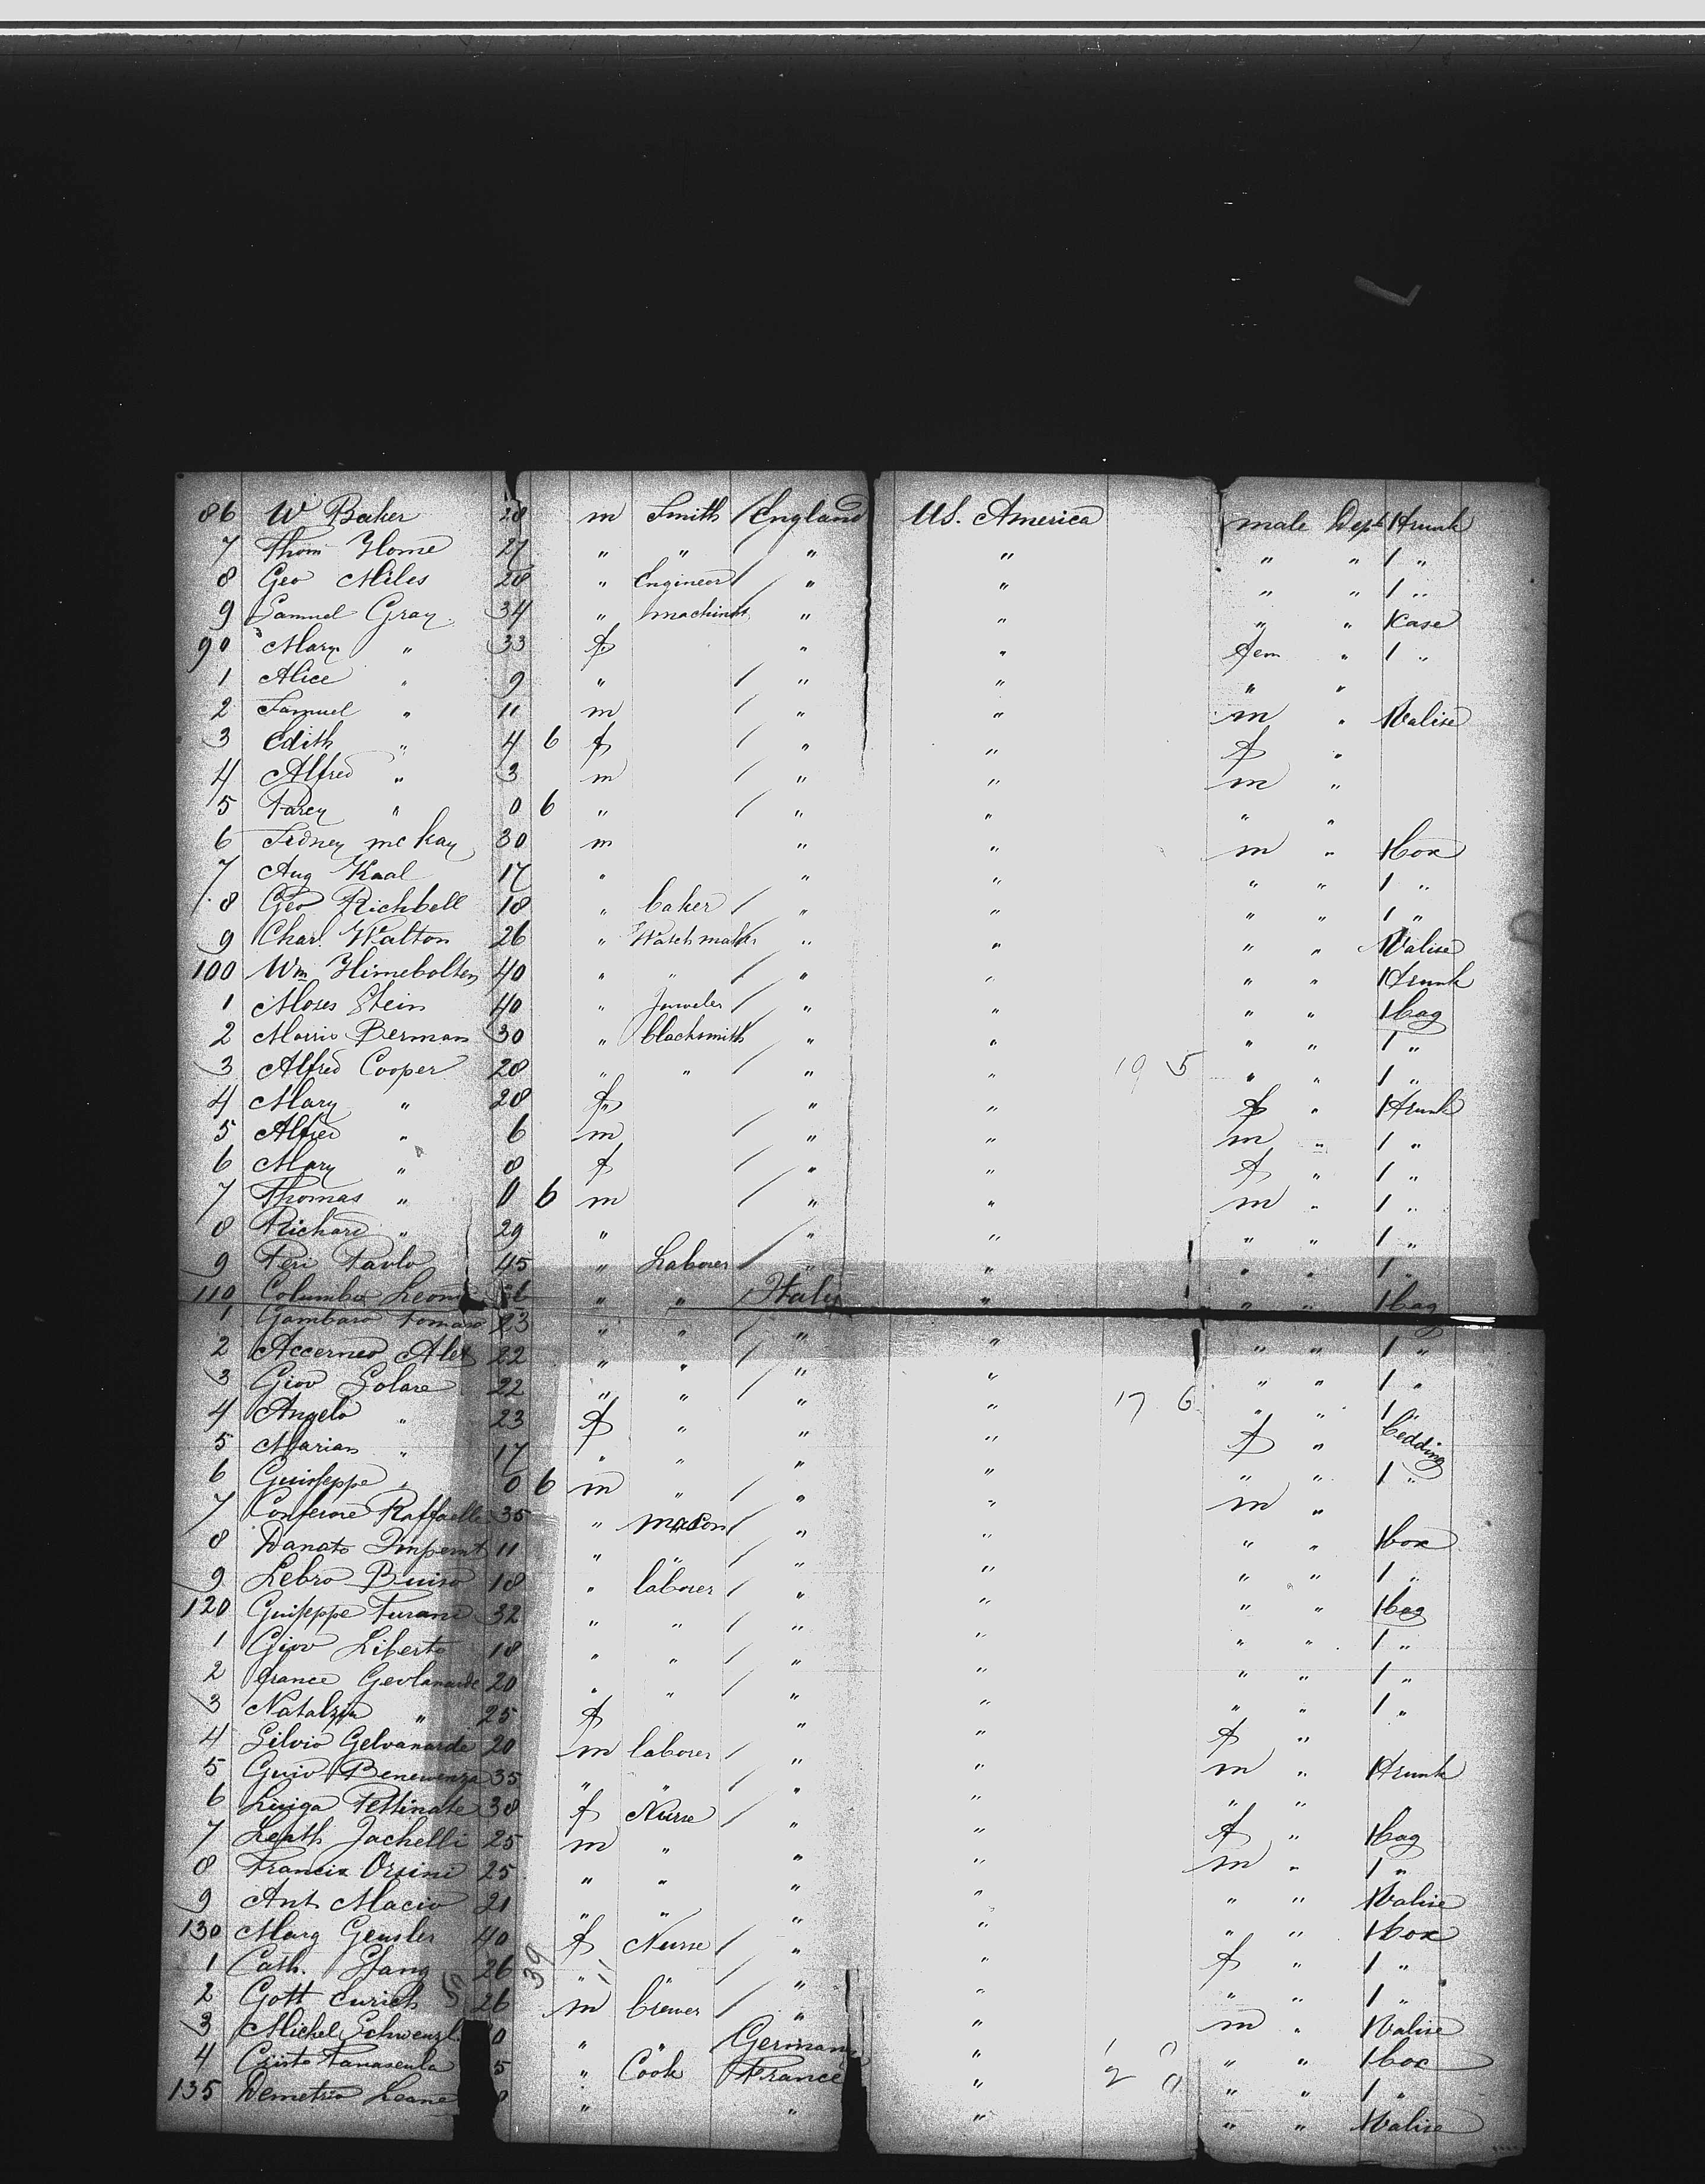 86 W Baker 28 m Smith England US. America male Dept 1 trunk
7 Thom Home 27 " " " " " " 1 "
8 Geo Miles 28 " Engineer " " " " 1 "
9 Samuel Gray 34 " machinist " " " " 1 case
90 Mary " 33 f " " fem " 1 "
1 Alice " 9 " " " " "
2 Samuel " 11 m " " m " 1 Valise
3 Edith " 4 6 f " " f "
4 Alfred " 3 m " " m "
5 Parcy " 0 6 " " " " "
6 Sidney mc kay 30 m " " m " 1 box
7 Aug Kaal 17 " " " " " 1 "
8 Geo Richbell 18 " baker " " " " 1 "
9 Charl. Walton 26 " Watchmaker " " " " 1 Valise
100 Wm Himebolten 40 " " " " " " 1 trunk
1 Moses Stein 40 " Juweler " " " " 1 bag
2 Morris Berman 30 " blacksmith " " " " 1 "
3 Alfred Cooper 28 " " " " 19 5 " " 1 "
4 Mary " 28 f " " f " 1 trunk
5 Alfred " 6 m " " m " 1 "
6 Mary " 8 f " " f " 1 "
7 Thomas " 0 6 m " " m " 1 "
8 Richard " 29 " " " " " 1 "
9 Peri Paulo 45 " Laborer " " " " 1 "
110 Columba Leone " " Italy " " " 1 bag
1 Gambaro Tomaso 23 " " " " " " 1 "
2 Accerneo Alex 22 " " " " " " 1 "
3 Giov Solare 22 " " " " 17 6 " " 1 "
4 Angelo " 23 f " " " f " bedding
5 Marian " 17 " " " " " " 1 "
6 Guiseppe " 0 6 m " " " m "
7 Raffaelle 35 " mason " " " " 1 box
8 Danato 11 " " " " " " 1 "
9 Lebro Buiso 18 " laborer " " " " 1 bag
120 Guiseppe Furane 32 " " " " " " 1 "
1 Giov Liberto 18 " " " " " " 1 "
2 france 20 " " " " " " 1 "
3 Natalzia " 25 f " " f "
4 Silvio Gelvanarde 20 m laborer " " m " 1 trunk
5 Guio Benevenza 35 " " " " " "
6 Luiga Pettinate 38 f Nurse " " f " 1 bag
7 Jachelli 25 m " " " m " 1 "
8 Francis Orsini 25 " " " " " " 1 Valise
9 Ant Macio 21 " " " " " " 1 box
130 Marg Gensler 40 f Nurse " " f " 1 "
1 Cath. Stang 26 39 " " " " " " 1 "
2 Gott Eurich 26 m brewer " " m " 1 Valise
3 Michel Schwenzl 0 " " Germany " " " 1 box
4 5 " Cook France " 2 0 " " 1 "
135 Demetrio Leane " " " " " 1 Valise